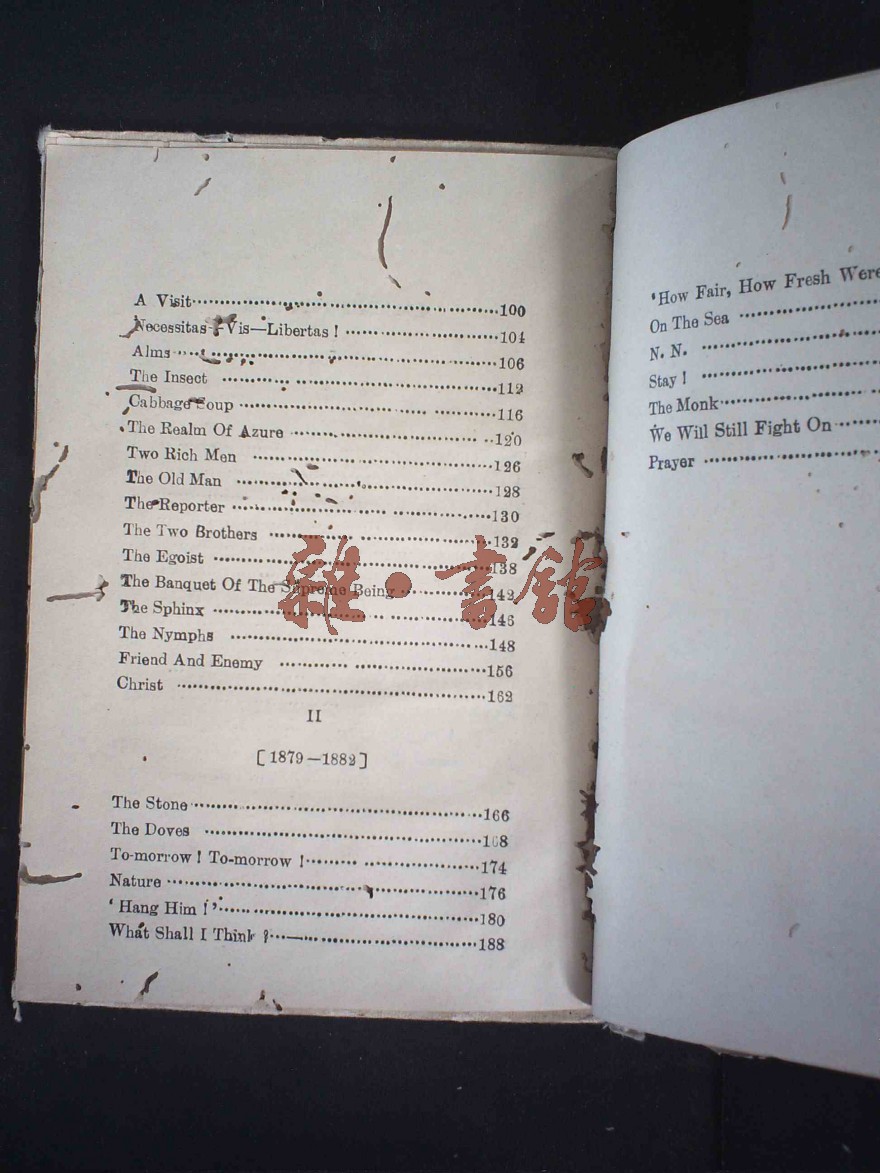 A Visit ........ 100
Necessitas—Vis—Libertas ! ........ 104
Alms ........ 106
The Insect ........ 112
Cabbage Soup ........ 116
The Realm Of Azure ........ 120
Two Rich Men ........ 126
The Old Man ........ 128
The Reporter ........ 130
The Two Brothers ........ 132
The Egoist ........ 138
The Banquet Of The Supreme Being ........ 142
The Sphinx ........ 146
The Nymphs ........ 148
Friend And Enemy ........ 156
Christ ........ 162
II
[ 1879—1882 ]
The Stone ........ 166
The Doves ........ 168
To-morrow ! To-morrow ! ........ 174
Nature ........ 176
‘ Hang Him ! ’ ........ 180
What Shall I Think ? ........ 188
‘How Fair, How Fresh Were
On The Sea ........
N. N. ........
Stay ! ........
The Monk ........
We Will Still Fight On ........
Prayer ........
雜·書館